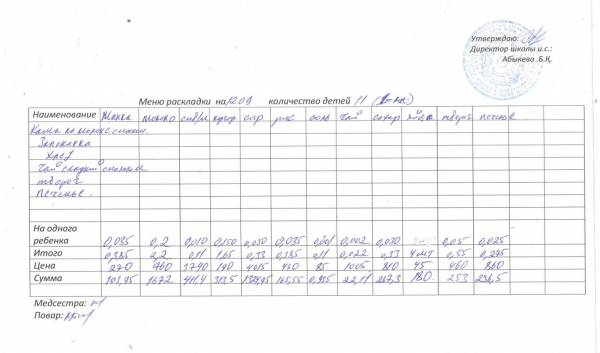 Утверждаю:
Директор школы и.о.:
Абыкева .Б.Қ.
Меню раскладки на 12 09 количество детей 11
Наименование Манка молоко сл/м сыр рис соль чай сахар яйцо творог печенье
Каша
Запеканка
Хлеб
Чай сладкий
творог
Печенье.
На одного
ребенка 0,035 0,2 0,010 0,150 0,030 0,035 0,001 0,002 0,030 - 0,05 0,025
Итого 0,385 2,2 0,11 1,65 0,33 0,385 0,11 0,022 0,33 4шт 0,55 0,275
Цена 270 760 3740 190 4015 430 85 1005 810 45 460 860
Сумма 103,95 1672 411,4 313,5 1324,95 165,55 0,935 22,11 267,3 180 253 236,5
Медсестра:
Повар: